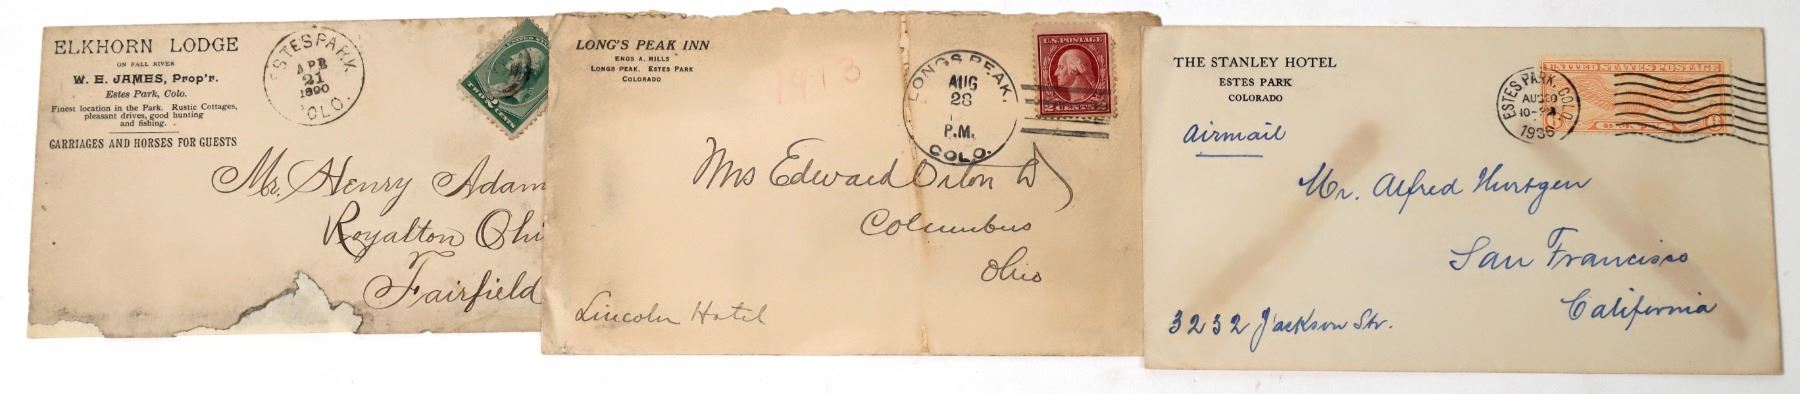 ELKHORN LODGE
ON FALL RIVER
W. E. JAMES, Prop'r.
Estes Park, Colo.
Finest location in the Park. Rustic Cottages,
pleasant drives, good hunting
and fishing.
CARRIAGES AND HORSES FOR GUESTS
ESTES PARK
APR
21
1890
COLO.
UNITED STATES
TWO 2 CENTS
Mr. Henry Adam
Royalton Ohi
Fairfield
LONG'S PEAK INN
ENOS A. MILLS
LONGS PEAK. ESTES PARK
COLORADO
1913
LONGS PEAK.
AUG
28
P.M.
COLO.
U.S. POSTAGE
2 CENTS 2
Mrs Edward Orton
Columbus
Ohio
Lincoln Hotel
THE STANLEY HOTEL
ESTES PARK
COLORADO
airmail
ESTES PARK, COLO.
1936
UNITED STATES POSTAGE
6 6
Mr. Alfred Hurtgen
San Francisco
California
3232 Jackson Str.